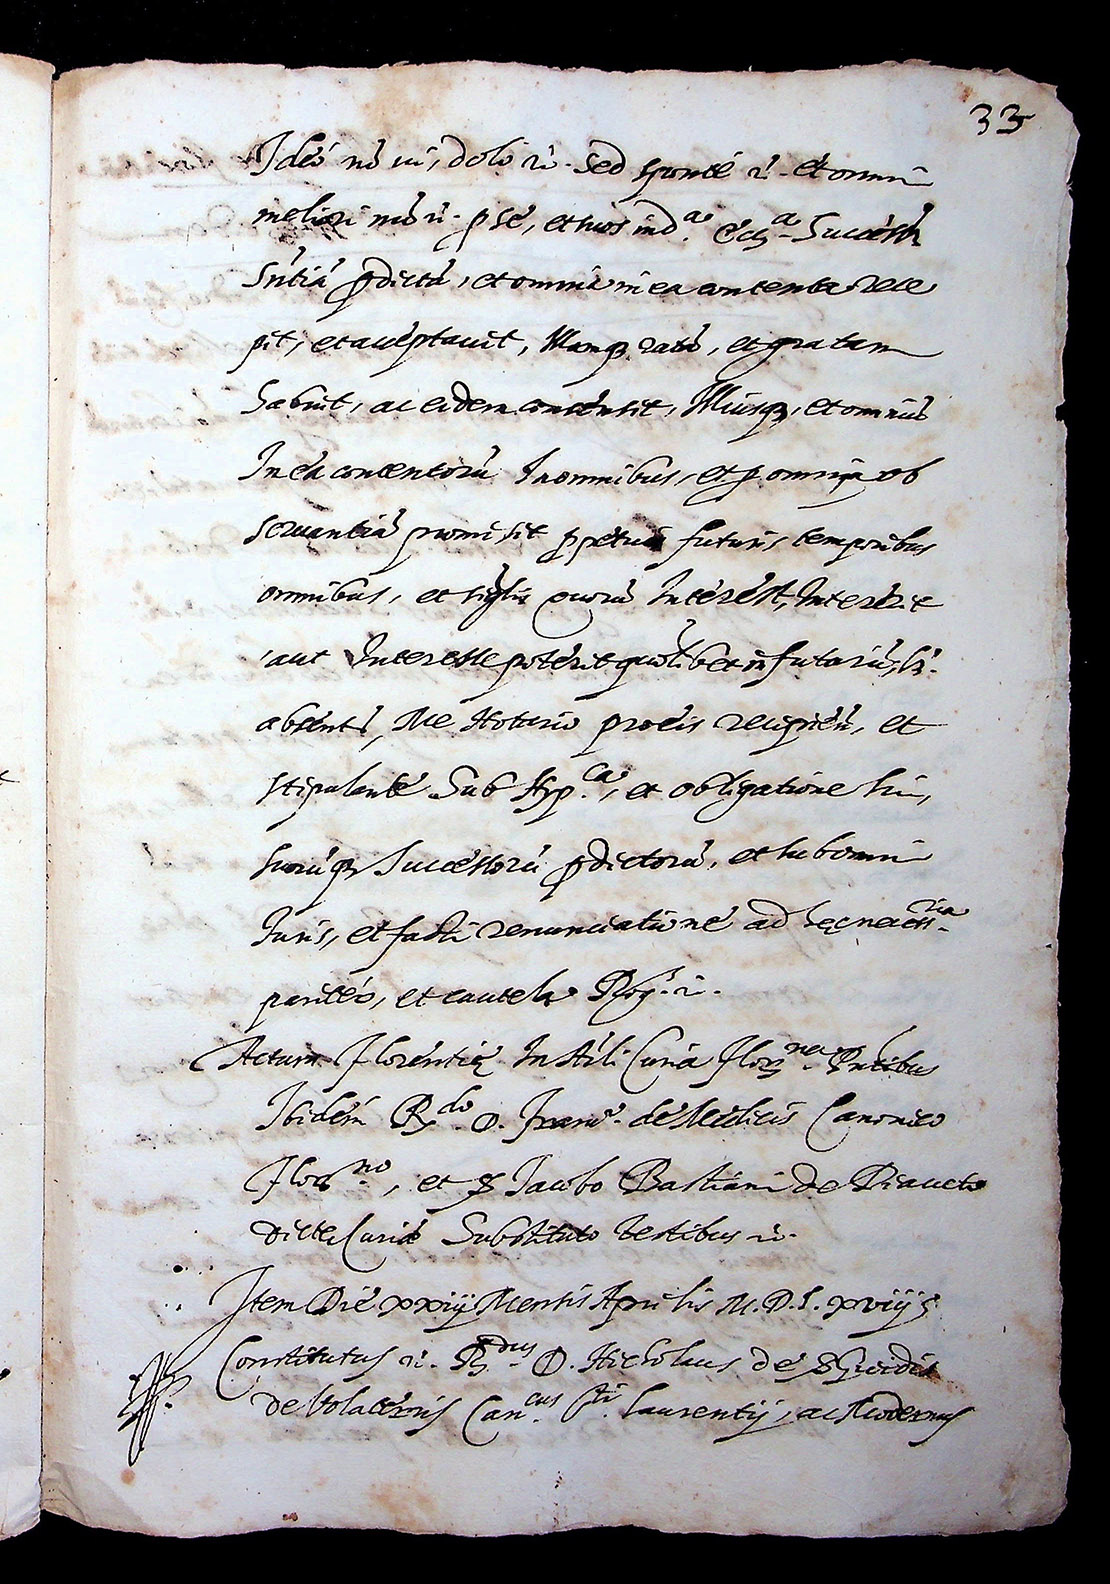 33
Ideò nō ui, dolo rr. Sed sponte rr. et omni
meliori mō rr. p se, et suos in dᵃ. Ecclᵃ. Success
Sn̄tia p̄dicta, et omnia in ea contenta rece
pit, et acceptauit, Illamq₃ ratā, et gratam
habuit, ac eidem consensit, Illiusq₃, et omniū
In ea contentorū In omnibus, et p omnia ob
seruantiā promisit ppetuis futuris temporibus
omnibus, et siglis quorū Interest, Intererit
aut Interesse poterit quōlibet in futurū, lꝫ.
absente, Me Notario pro eis recipien, et
stipulante Sub Hyp.ᶜᵃ, et obligatione sui,
suorūq₃ Successorū p̄dictorū, et sub omni
Iuris, et facti renunciatione ad hec necess.ʳⁱᵃ
pariter, et cautela Rog. rr.
Actum Florentię In Curia Flor.ⁿᵃ Pn̄tibus
Ibidem R.ᵈᵒ D. Franc.º de Medicis Canonico
Flor.ⁿᵒ, et S Iacobo Bastiani de
dicte Curię Substituto testibus rr.
Item Die xxiij Mensis Aprilis M.D.L.xviij
Constitutus rr. R.ᵈᵘˢ D. Nicholaus de
de Volaterris Can.ᶜᵘˢ Sti. Laurentij, ac Modernus